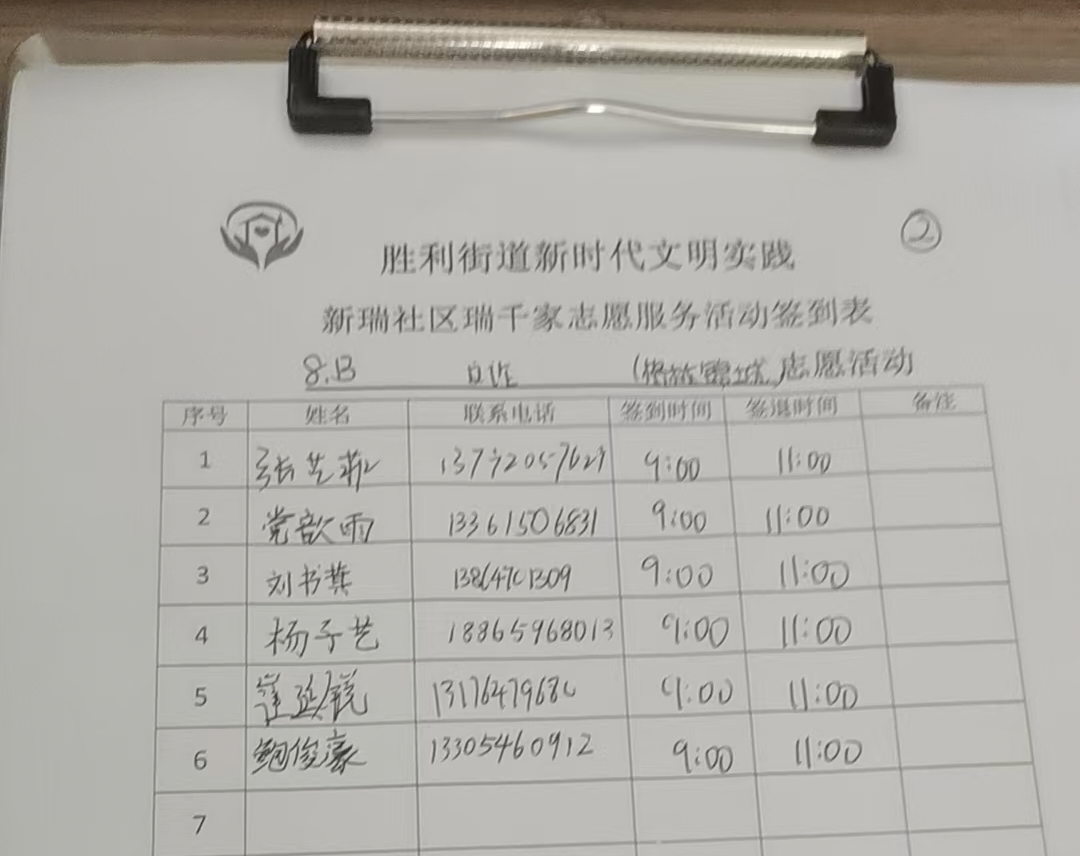 ②
胜利街道新时代文明实践
新瑞社区瑞千家志愿服务活动签到表
8.13 志愿活动
序号 姓名 联系电话 签到时间 签退时间 备注
1 张艺菲 9:00 11:00
2 党歆雨 13361506831 9:00 11:00
3 刘书龚 9:00 11:00
4 杨子艺 18865968013 9:00 11:00
5 崔延锐 9:00 11:00
6 鲍俊豪 13305460912 9:00 11:00
7